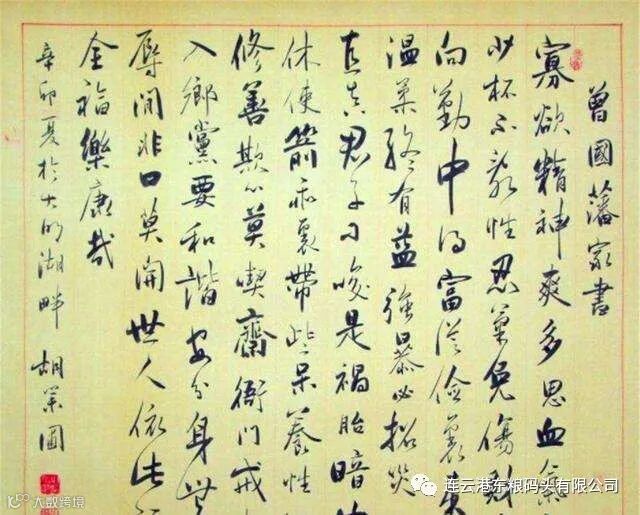 曾國藩家書
寡欲精神爽多思血氣
少杯不亂性忍氣免傷財
向勤中得富從儉裏來
溫柔終有益強暴必招災
直真君子刁唆是禍胎暗
休使箭乖裏帶些呆養性
修善欺心莫喫齋衙門戒
入鄉黨要和諧安分身無
辱閒非口莫開世人依此
全福樂康哉
辛卯夏於大明湖畔 胡
大数跨境
连云港东粮码头有限公司